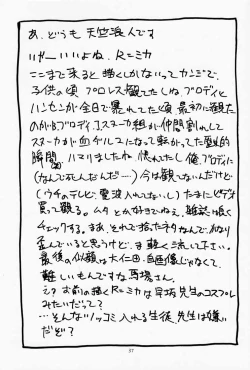 あ、どうも 天竺浪人です
いやーいいよね、R=ミカ
ここまで来ると描くしかないってカンジで、
子供の頃プロレス観てたしねブロディと
ハンセンが全日で暴れてた頃、最初に観た
のがB・ブロディ、J・スヌーカ組が仲間割れして
スヌーカが血ダルマになって転がってた歴史的
瞬間 ハマりましたね 惚れたし俺、ブロディに
(なんでだんだんだ…)今は観てないんだけど
(ウチのテレビ、電波入れてないし)たまにビデオ
買って観る。ムタとか好きでねぇ、雑誌は良く
チェックする。まあ、それで拾ったネタなんで、かなり
歪んでいると思うけど、ま軽く流して下さい。
最後の似顔は大仁田、自画像じゃなくて、
難しいもんですな馬場さん。
え?お前の描くR=ミカは 先生のコスプレ
みたいだって?
…そんなツッコミ入れる生徒、先生は嫌い
だぞ?
37